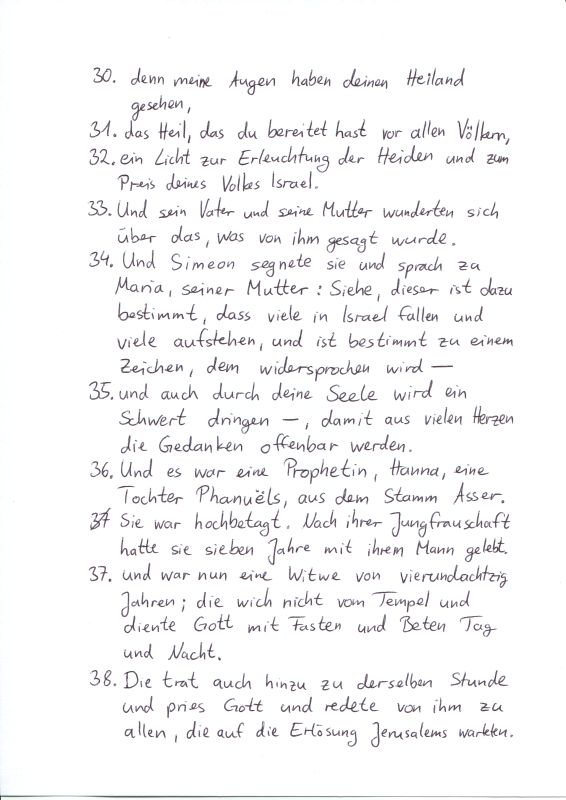 30. denn meine Augen haben deinen Heiland
gesehen,
31. das Heil, das du bereitet hast vor allen Völkern,
32. ein Licht zur Erleuchtung der Heiden und zum
Preis deines Volkes Israel.
33. Und sein Vater und seine Mutter wunderten sich
über das, was von ihm gesagt wurde.
34. Und Simeon segnete sie und sprach zu
Maria, seiner Mutter: Siehe, dieser ist dazu
bestimmt, dass viele in Israel fallen und
viele aufstehen, und ist bestimmt zu einem
Zeichen, dem widersprochen wird —
35. und auch durch deine Seele wird ein
Schwert dringen —, damit aus vielen Herzen
die Gedanken offenbar werden.
36. Und es war eine Prophetin, Hanna, eine
Tochter Phanuëls, aus dem Stamm Asser.
37 Sie war hochbetagt. Nach ihrer Jungfrauschaft
hatte sie sieben Jahre mit ihrem Mann gelebt.
37. und war nun eine Witwe von vierundachtzig
Jahren; die wich nicht vom Tempel und
diente Gott mit Fasten und Beten Tag
und Nacht.
38. Die trat auch hinzu zu derselben Stunde
und pries Gott und redete von ihm zu
allen, die auf die Erlösung Jerusalems warteten.